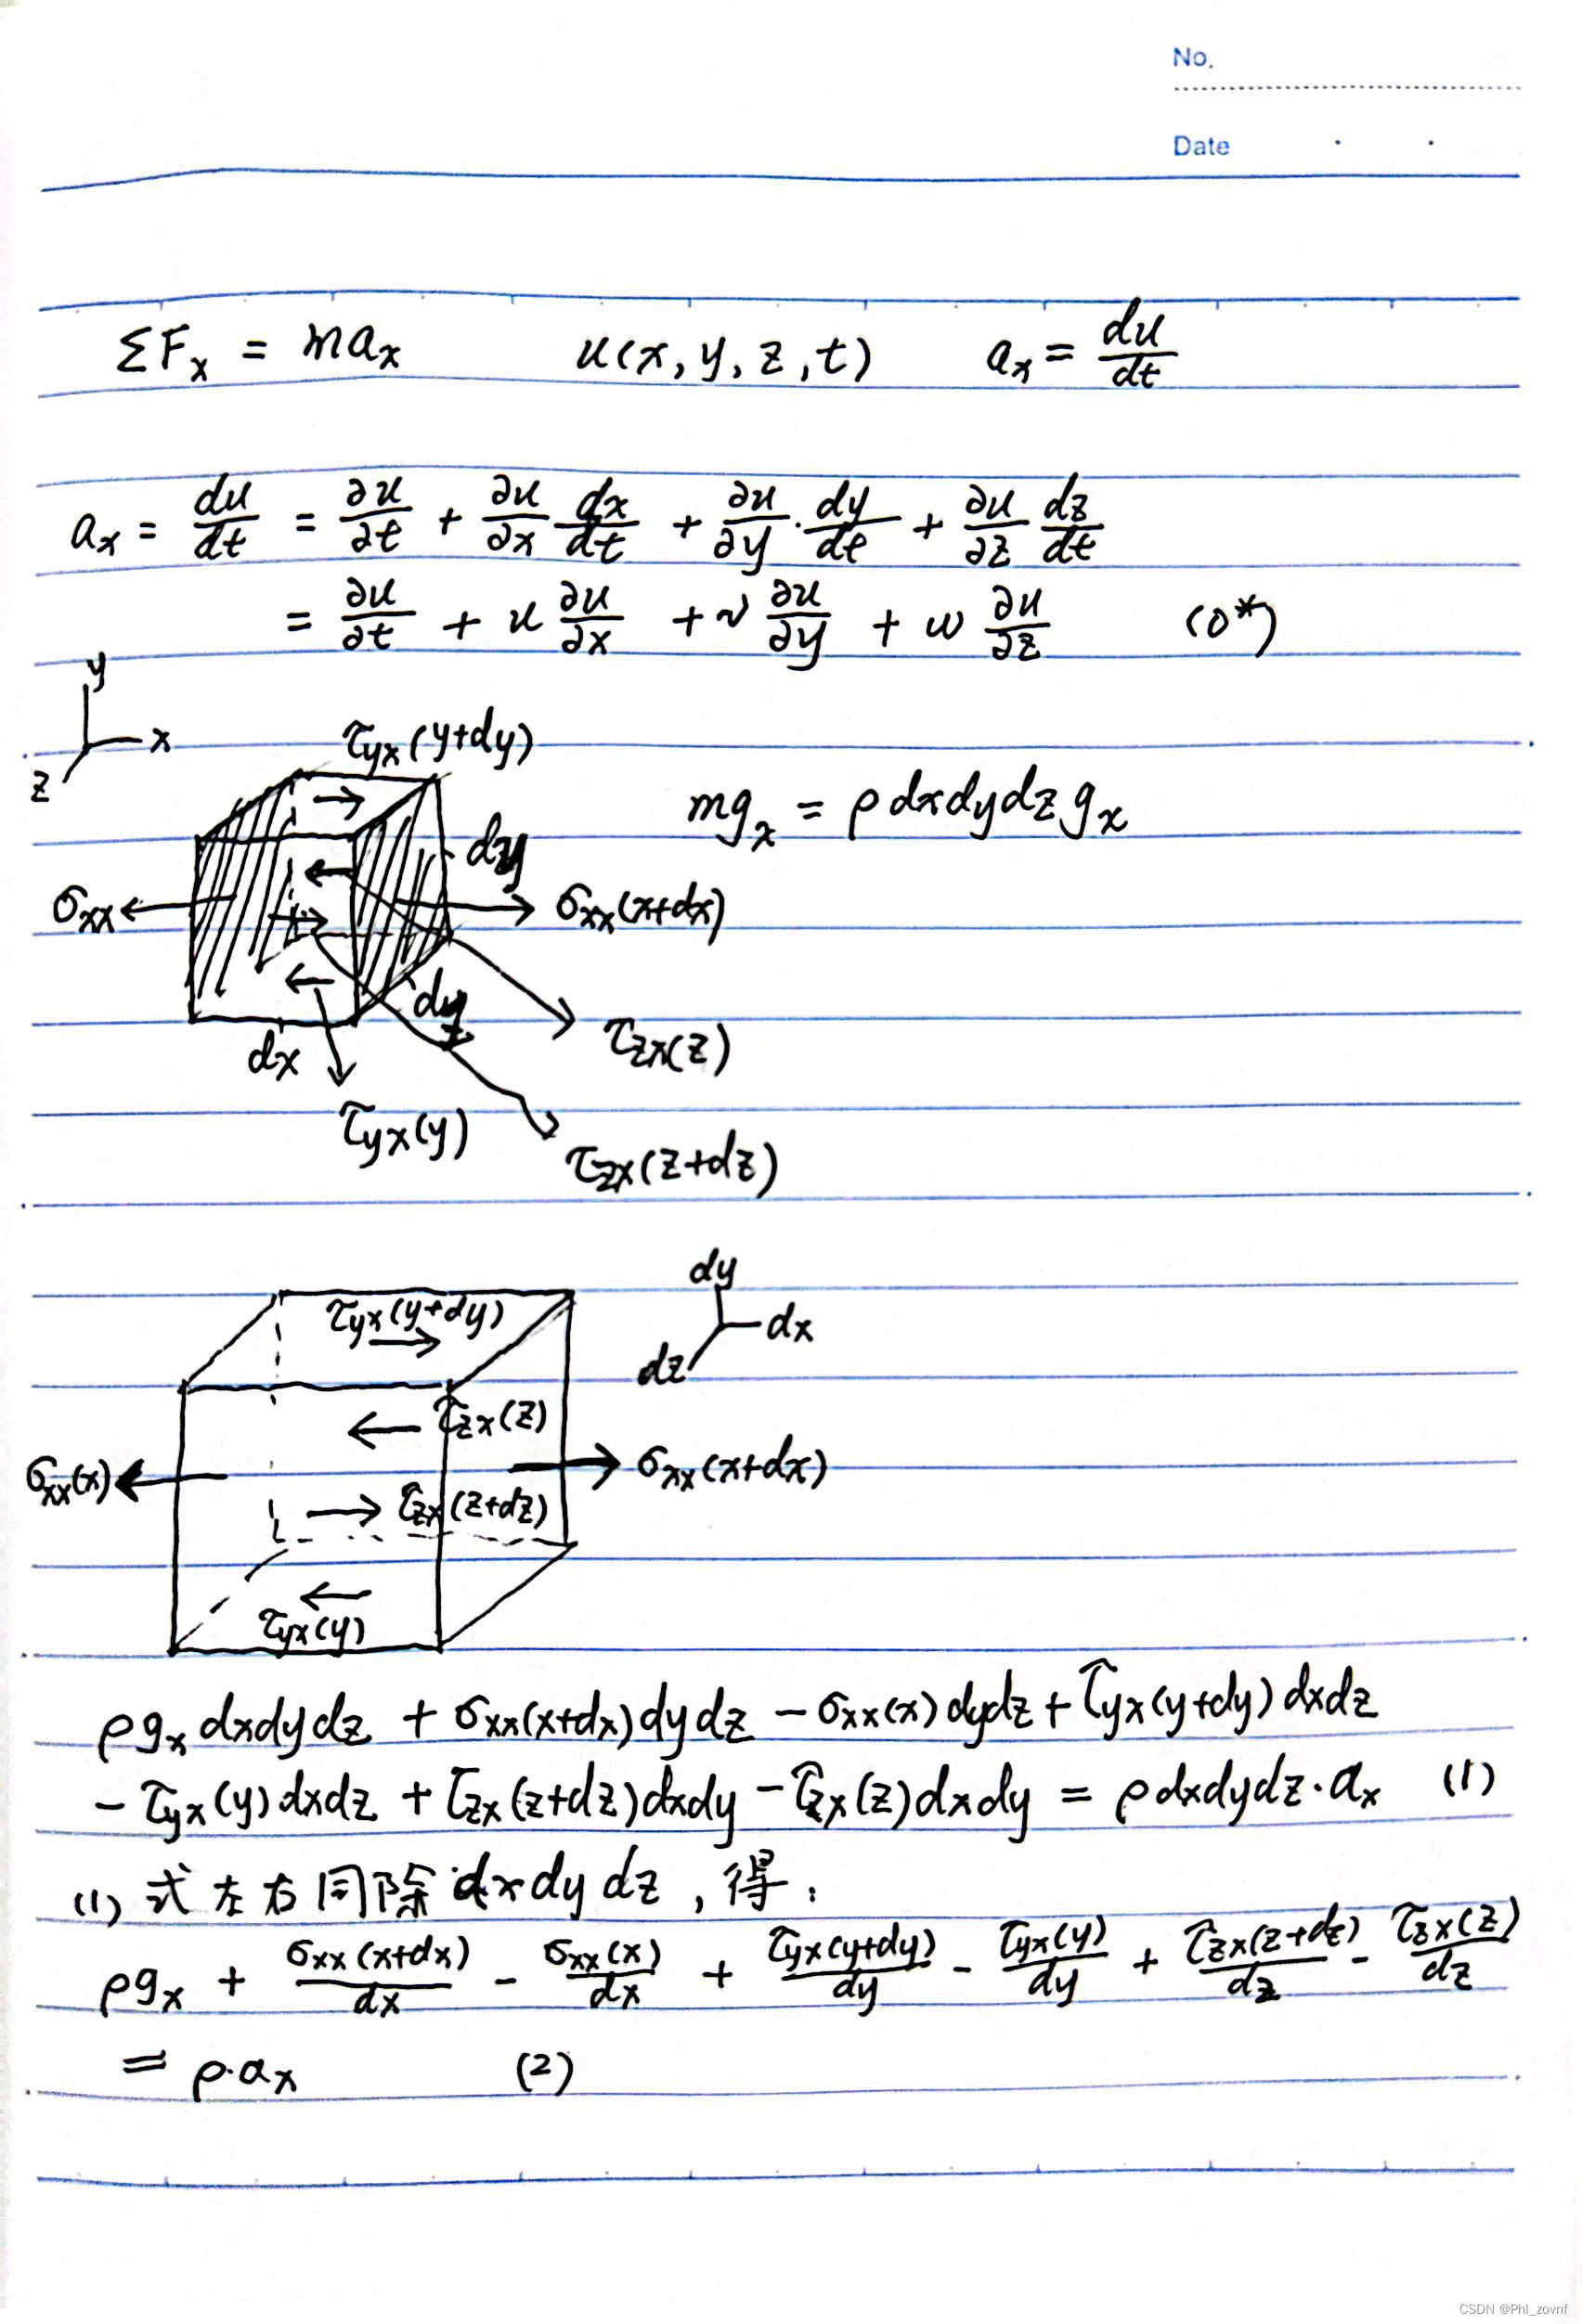 No.
Date
ΣFx = max    u(x, y, z, t)    ax = du/dt
ax = du/dt = ∂u/∂t + ∂u/∂x dx/dt + ∂u/∂y · dy/dt + ∂u/∂z dz/dt
= ∂u/∂t + u ∂u/∂x + v ∂u/∂y + w ∂u/∂z    (0*)
y
x
z
τyx(y+dy)
mgx = ρdxdydzgx
dy
σxx
σxx(x+dx)
dz
dx
τzx(z)
τyx(y)
τzx(z+dz)
dy
dx
dz
τyx(y+dy)
τzx(z)
σxx(x)
σxx(x+dx)
τzx(z+dz)
τyx(y)
ρgxdxdydz + σxx(x+dx)dydz - σxx(x)dydz + τyx(y+dy)dxdz
- τyx(y)dxdz + τzx(z+dz)dxdy - τzx(z)dxdy = ρdxdydz·ax    (1)
(1) 式左右同除 dxdydz, 得:
ρgx + σxx(x+dx)/dx - σxx(x)/dx + τyx(y+dy)/dy - τyx(y)/dy + τzx(z+dz)/dz - τzx(z)/dz
= ρ·ax    (2)
CSDN @Phl_zovnf